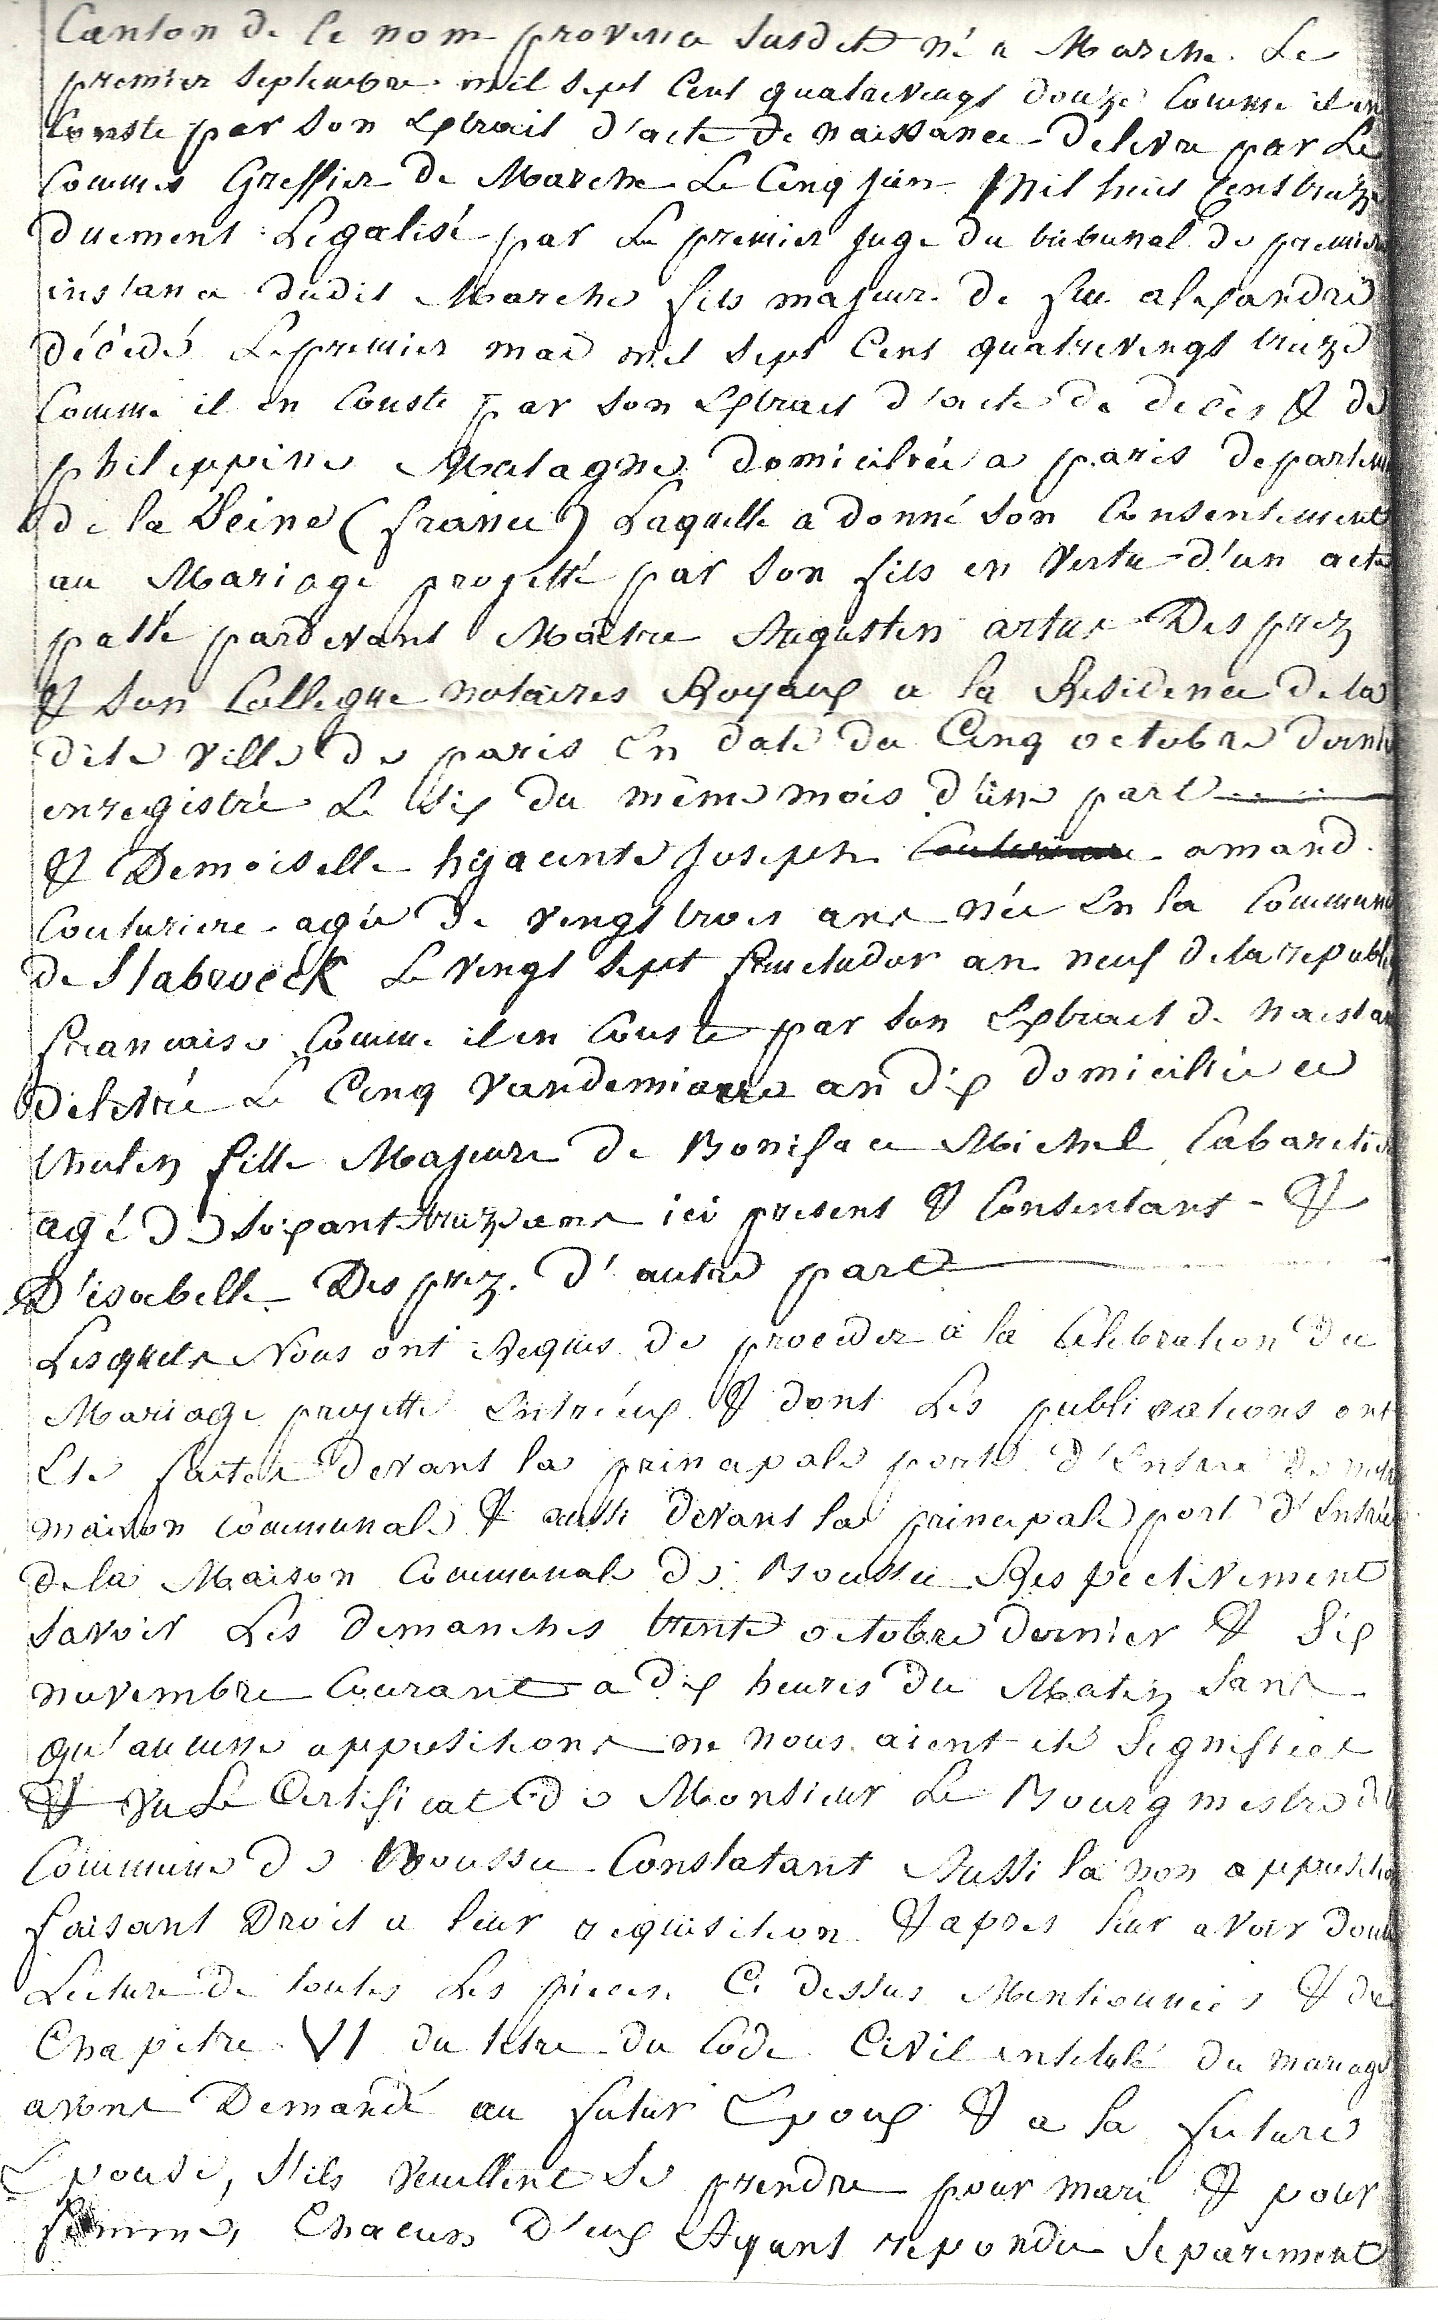 Canton de ce nom province susdite né a Marche Le
premier septembre mil sept cent quatrevingt douze comme il en
conste par son Extrait d'acte de naissance delivré par Le
commis Greffier de Marche Le cinq juin mil huit cent treize
duement Legalisé par Le premier juge du tribunal de premier
instance dudit Marche fils majeur de feu alexandre
décédé Le premier mai mil sept cent quatrevingt treize
comme il en conste par son Extrait d'acte de decès & de
philippine Malagne domiciliée a paris departem
de la Seine (france) Laquelle a donné son consentement
au Mariage projetté par son fils en vertu d'un acte
passé pardevant Maitre Augustin artus Desprez
& son Collegue notaires Royaux a la Residence de la
dite ville de paris en date du cinq octobre dernie
enregistré Le six du même mois d'une part
& Demoiselle hyacinte Joseph amand
couturiere agée de vingt trois ans née en la commune
de Stabroeck Le vingt sept fructudor an neuf de la republiq
francaise comme il en conste par son Extrait de naissan
delivré Le cinq vandemiaire an dix domiciliée a
thulin fille Majeure de Boniface Michel cabaretie
agé de soixant treize ans ici present & consentant - &
D'isabelle Desprez. d'autre part
Lesquels Nous ont Requis de proceder à la celebration du
Mariage projetté Entréux & dont Les publications ont
Eté faites devant la principale porte d'Entrée de notre
maison communale & aussi devant la principale port d'Entrée
de la Maison communale de Boussu Respectivement
savoir Les dimanches trente octobre dernier & six
novembre courant a dix heures du Matin sans
qu'aucune oppositions ne nous aient été signifiées
& vu Le certificat de Monsieur Le Bourgmestre de
commune de Boussu constatant Aussi la non oppositio
faisant Droit a leur requisition & apres leur avoir donné
Lecture de toutes Les pieces ci dessus Mentionnées & du
Chapitre VI du titre du code civil intitulé du mariage
avons Demandé au futur Epoux & a la future
Epouse, s'ils veuillent se prendre pour mari & pour
femme, chacun d'eux Ayant repondu separement